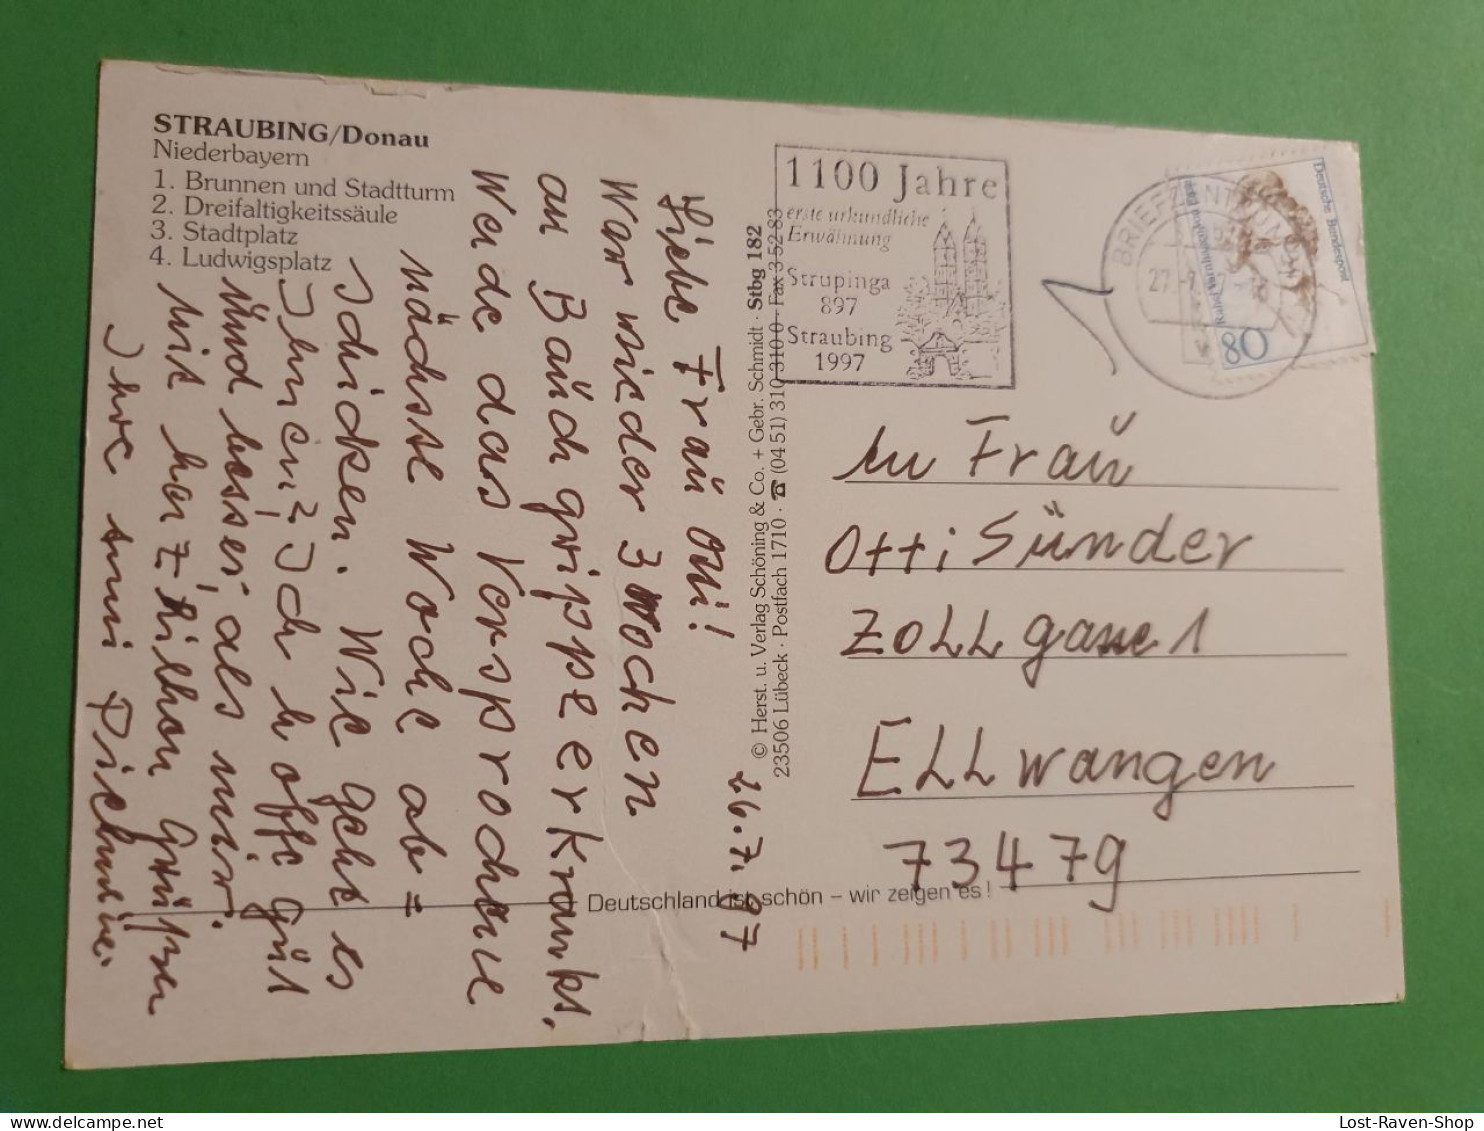 STRAUBING/Donau
Niederbayern
1. Brunnen und Stadtturm
2. Dreifaltigkeitssäule
3. Stadtplatz
4. Ludwigsplatz
26.7.97
Liebe Frau Otti!
War wieder 3 Wochen
an Bauchgrippe erkrankt.
Werde das Versprochene
nächste Woche ab=
schicken. Wie geht es
Ihnen? Ich hoffe gut
und besser, als mir.
Mit herzlichen Grüßen
Ihre
© Herst. u. Verlag Schöning & Co. + Gebr. Schmidt · Stbg 182
23506 Lübeck · Postfach 1710 · ☎ (04 51) 310 310-0 · Fax 3 52 83
Deutschland ist schön – wir zeigen es!
1100 Jahre
erste urkundliche
Erwähnung
Strupinga
897
Straubing
1997
BRIEFZENTRUM
27
Deutsche Bundespost
80
An Frau
Otti Sünder
ZOLLgasse 1
ELLwangen
73479
Lost-Raven-Shop